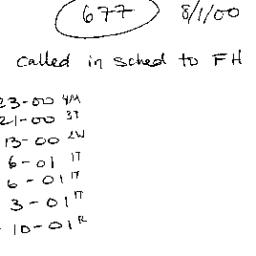 677 8/1/00
called in sched to FH
23-00 4M
21-00 3T
13-00 2W
6-01 1T
6-01 1T
3-01 1T
10-01 R